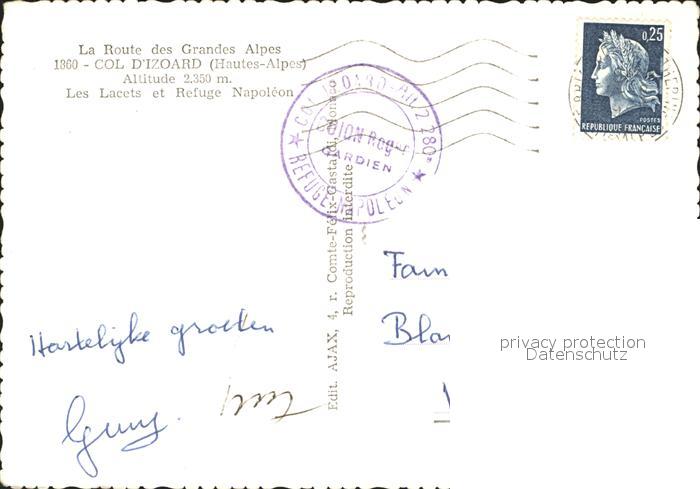 La Route des Grandes Alpes
1860 - COL D'IZOARD (Hautes-Alpes)
Altitude 2.350 m.
Les Lacets et Refuge Napoléon
0,25
POSTES
REPUBLIQUE FRANÇAISE
COL IZOARD
GARDIEN
REFUGE NAPOLEON
Edit. AJAX, 4, r. Comte-Félix-Gastard
Reproduction interdite
Fam
Bla
Hartelijke groeten
privacy protection
Datenschutz